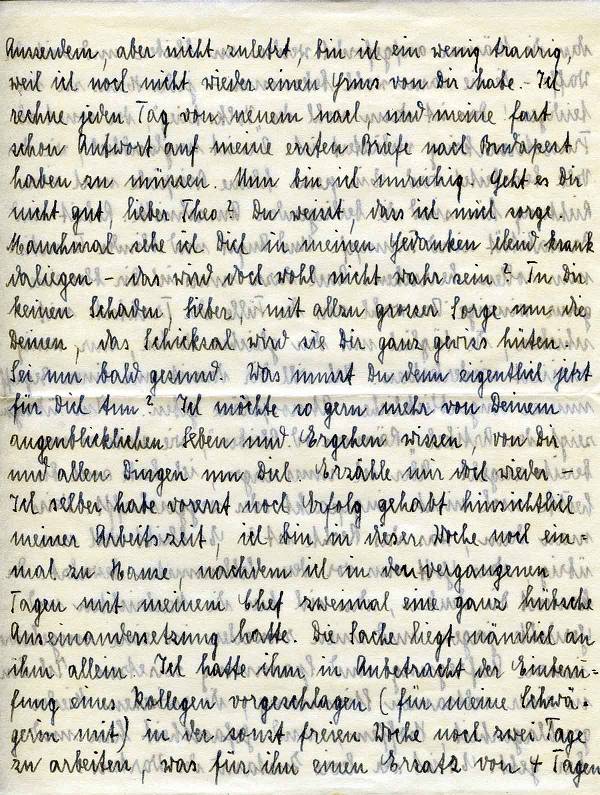 Ausserdem, aber nicht zuletzt, bin ich ein wenig traurig,
weil ich noch nicht wieder einen Gruss von dir habe. - Ich
rechne jeden Tag von neuem nach, und meine fast
schon Antwort auf meine ersten Briefe nach Budapest
haben zu müssen. Nun bin ich unruhig. Geht es Dir
nicht gut, lieber Theo? Du weisst, dass ich mich sorge.
Manchmal sehe ich Dich in meinen Gedanken elend krank
daliegen - das wird doch wohl nicht wahr sein? Tu Dir
keinen Schaden, Lieber, mit allzu grosser Sorge um die
Deinen, das Schicksal wird sie Dir ganz gewiss hüten.
Sei nur bald gesund. Was musst Du denn eigentlich jetzt
für Dich tun? Ich möchte so gern mehr von Deinem
augenblicklichen Leben und Ergehen wissen, von Dir
und allen Dingen um Dich. Erzähle mir doch wieder -
Ich selber habe vorerst noch Erfolg gehabt hinsichtlich
meiner Arbeitszeit, ich bin in dieser Woche noch ein=
mal zu Hause, nachdem ich in den vergangenen
Tagen mit meinem Chef zweimal eine ganz hübsche
Auseinandersetzung hatte. Die Sache liegt nämlich an
ihm allein. Ich hatte ihm in Anbetracht der Einberu=
fung eines Kollegen vorgeschlagen (für meine Schwä=
gerin mit) in der sonst freien Woche noch zwei Tage
zu arbeiten, was für ihn einen Ersatz von 4 Tagen